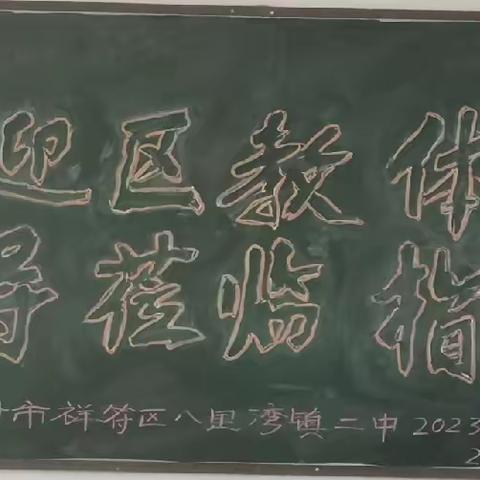 迎区教体
导莅临指
市祥符区八里湾镇二中 2023
2